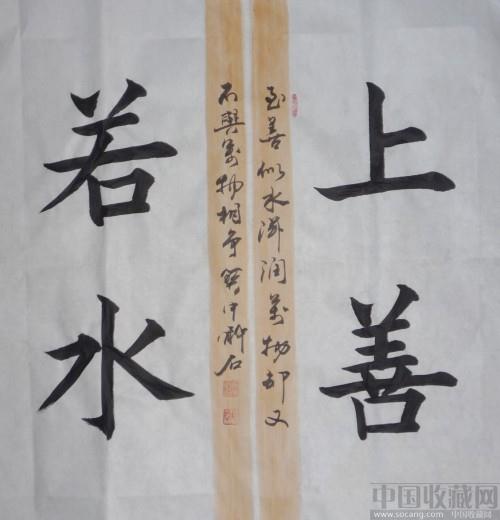 上善
若水
至善似水滋润萬物却又
不與萬物相争
石
中国收藏网
www.socang.com 中国收藏网